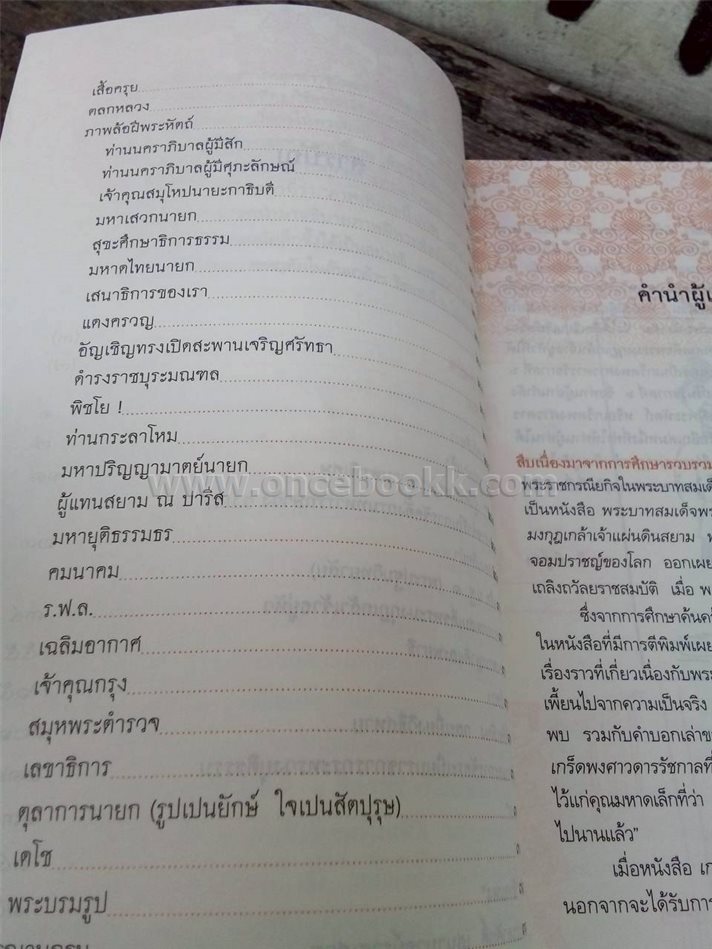 เสื้อครุย
ตลกหลวง
ภาพล้อฝีพระหัตถ์
ท่านนคราภิบาลผู้มีสัก
ท่านนคราภิบาลผู้มีศุภะลักษณ์
เจ้าคุณสมุโหปนายะกาธิบดี
มหาเสวกนายก
สุขะศึกษาธิการธรรม
มหาดไทยนายก
เสนาธิการของเรา
แดงครวญ
อัญเชิญทรงเปิดสะพานเจริญศรัทธา
ดำรงราชบุระมณฑล
พิชโย !
ท่านกระลาโหม
มหาปริญญามาตย์นายก
ผู้แทนสยาม ณ ปารีส
มหายุติธรรมธร
คมนาคม
ร.ฟ.ล.
เฉลิมอากาศ
เจ้าคุณกรุง
สมุหพระตำรวจ
เลขาธิการ
ตุลาการนายก (รูปเปนยักษ์ ใจเปนสัตปุรุษ)
เดโช
พระบรมรูป
www.oncebookk.com
คำนำผู้
สืบเนื่องมาจากการศึกษารวบรวม
พระราชกรณียกิจในพระบาทสมเด็
เป็นหนังสือ พระบาทสมเด็จพร
มงกุฎเกล้าเจ้าแผ่นดินสยาม
จอมปราชญ์ของโลก ออกเผย
เถลิงถวัลยราชสมบัติ เมื่อ พ
ซึ่งจากการศึกษาค้นคว้
ในหนังสือที่มีการตีพิมพ์เผย
เรื่องราวที่เกี่ยวเนื่องกับพระ
เพี้ยนไปจากความเป็นจริง
พบ รวมกับคำบอกเล่าข
เกร็ดพงศาวดารรัชกาลที่
ไว้แก่คุณมหาดเล็กที่ว่า
ไปนานแล้ว”
เมื่อหนังสือ เก
นอกจากจะได้รับการ